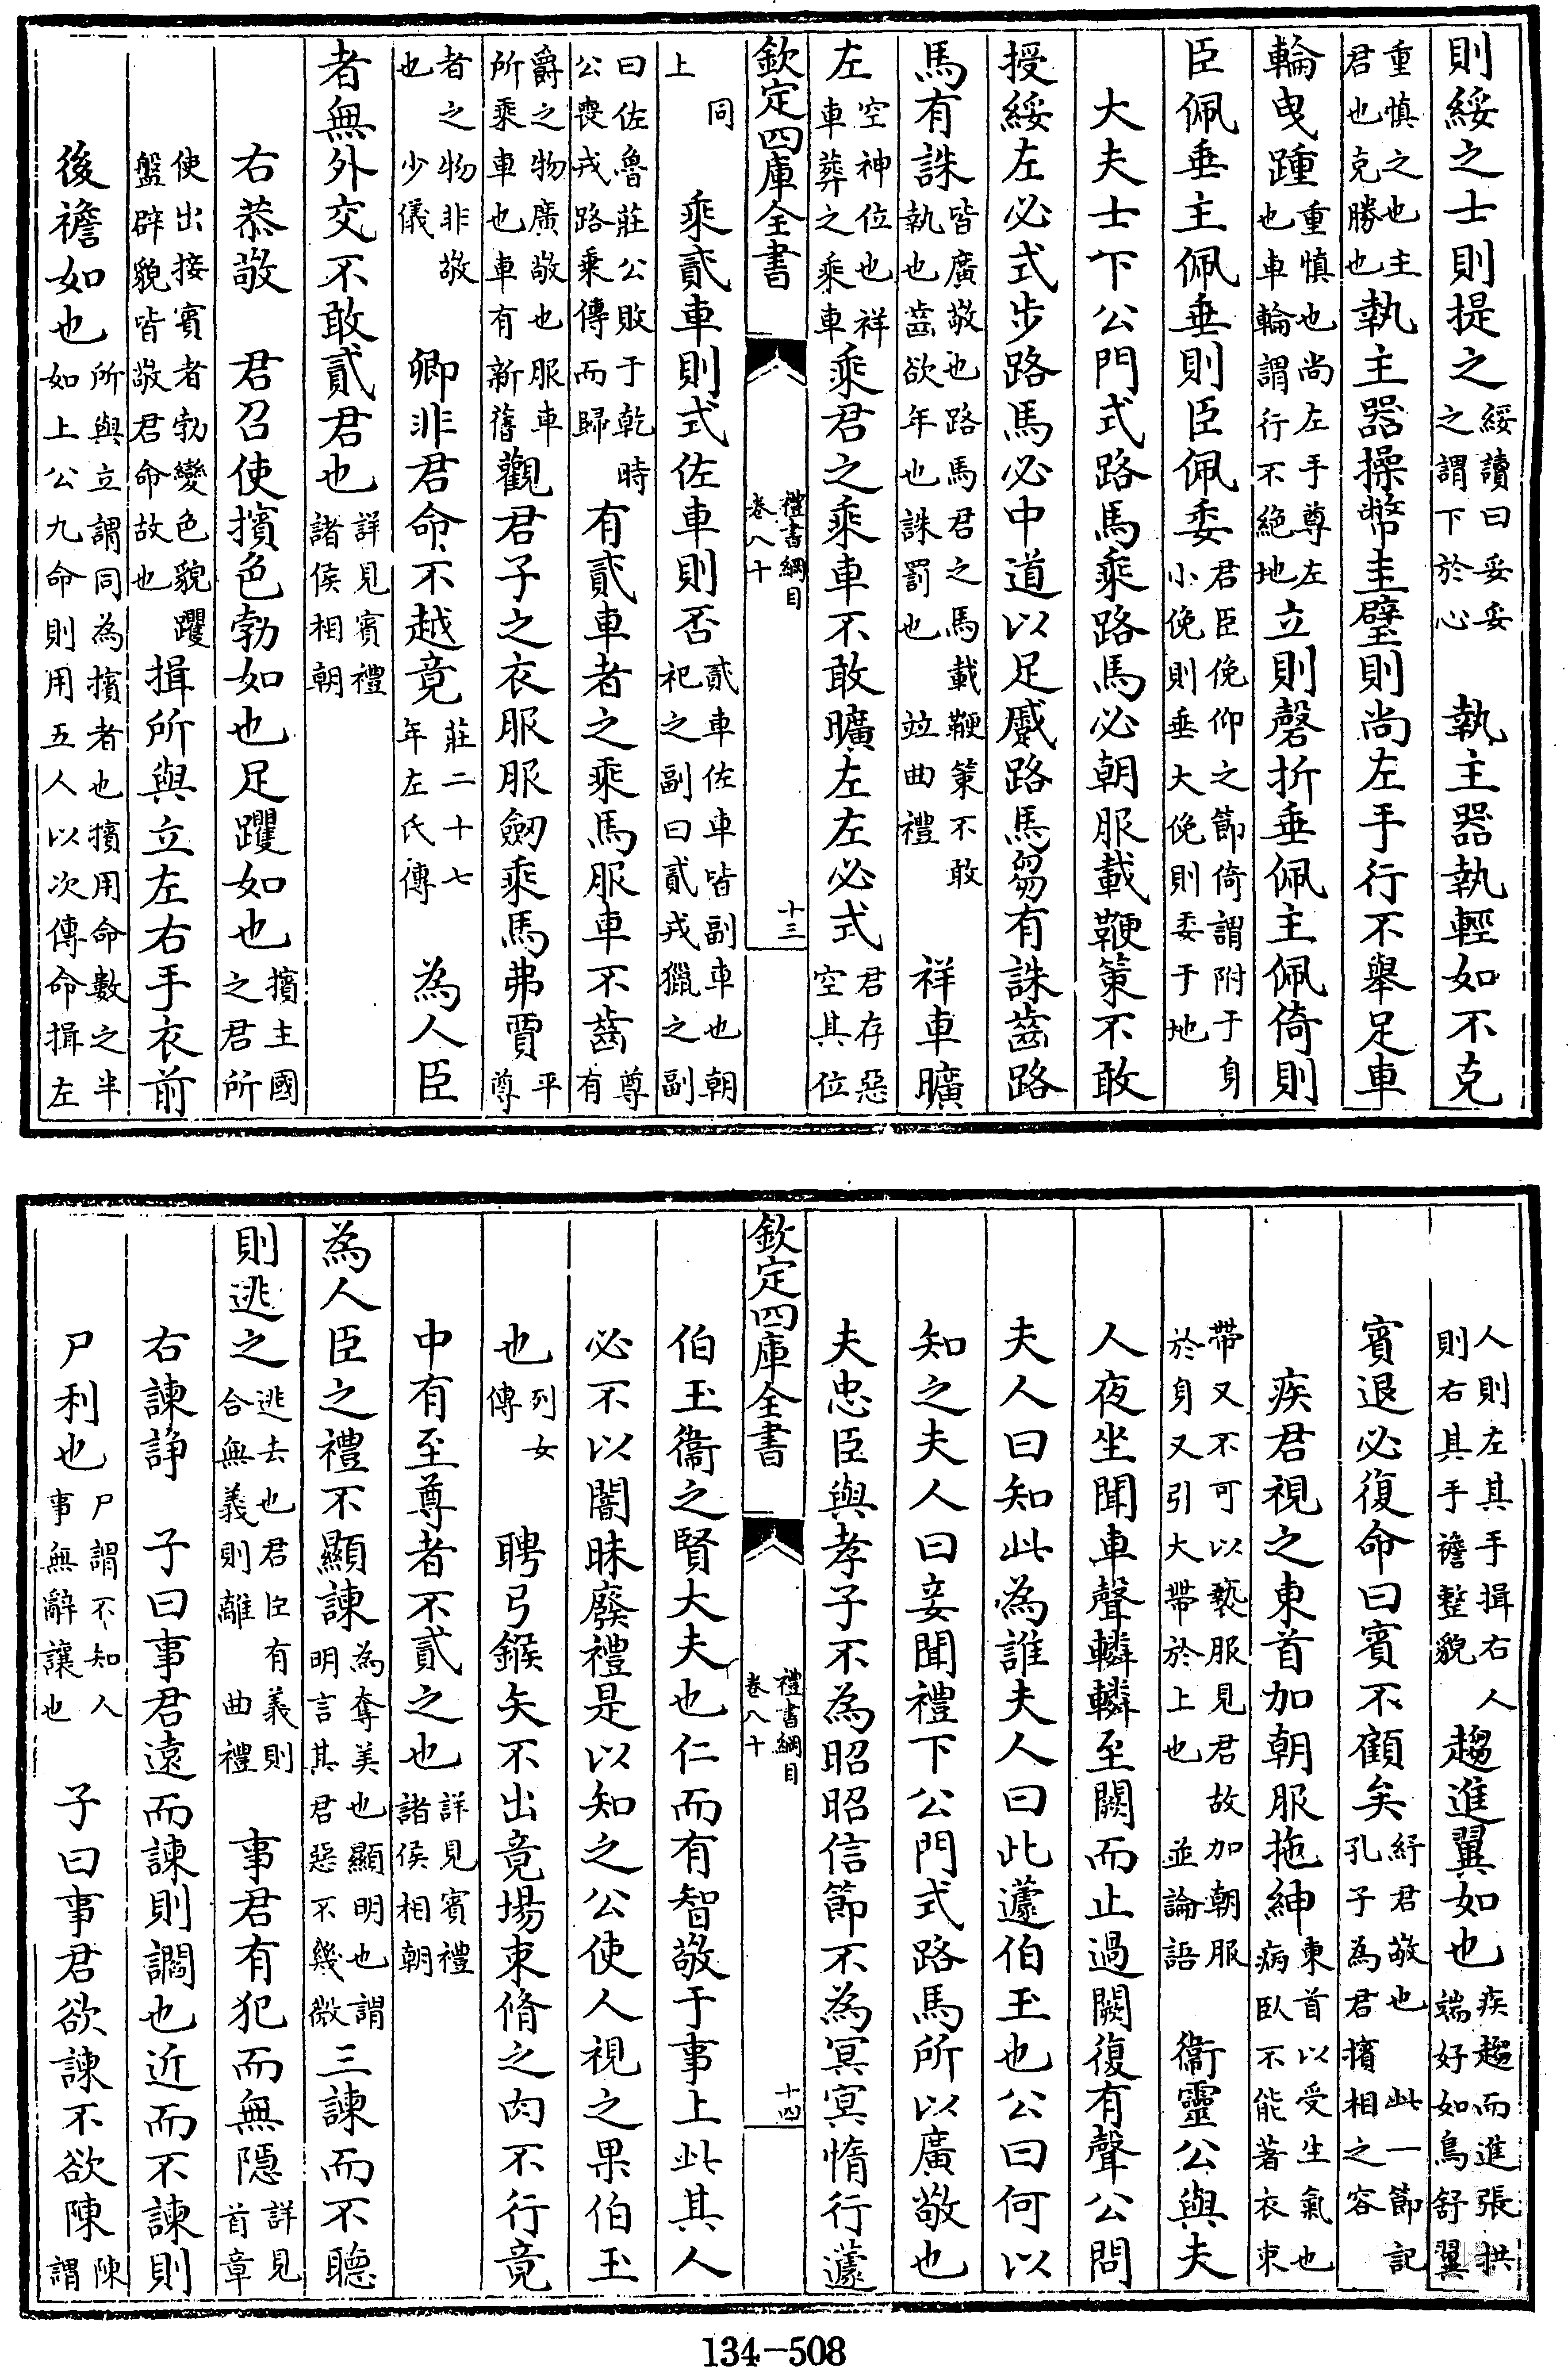 則綏之士則提之綏讀曰妥妥之謂下於心　執主器執輕如不克
重慎之也主君也克勝也執主器操幣圭璧則尚左手行不舉足車
輪曳踵重慎也尚左手尊左也車輪謂行不絕地立則磬折垂佩主佩倚則
臣佩垂主佩垂則臣佩委君臣俛仰之節倚謂附于身小俛則垂大俛則委于地
大夫士下公門式路馬乘路馬必朝服載鞭策不敢
授綏左必式步路馬必中道以足蹙路馬芻有誅齒路
馬有誅皆廣敬也路馬君之馬載鞭策不敢執也齒欲年也誅罰也　竝曲禮　祥車曠
左空神位也祥車葬之乘車乘君之乘車不敢曠左左必式君存惡空其位
欽定四庫全書　禮書綱目卷八十　十三
同上　乘貳車則式佐車則否貳車佐車皆副車也朝祀之副曰貳戎獵之副
曰佐魯莊公敗于乾時公喪戎路乘傳而歸　有貳車者之乘馬服車不齒尊有
爵之物廣敬也服車所乘車也車有新舊觀君子之衣服服劒乘馬弗賈平尊
者之物非敬也　少儀　卿非君命不越竟莊二十七年左氏傳　為人臣
者無外交不敢貳君也詳見賓禮諸侯相朝
右恭敬　君召使擯色勃如也足躩如也擯主國之君所
使出接賓者勃變色貌躩盤辟貌皆敬君命故也揖所與立左右手衣前
後襜如也所與立謂同為擯者也擯用命數之半如上公九命則用五人以次傳命揖左
人則左其手揖右人則右其手襜整貌趨進翼如也疾趨而進張拱端好如鳥舒翼
賓退必復命曰賓不顧矣紓君敬也　此一節記孔子為君擯相之容
疾君視之東首加朝服拖紳東首以受生氣也病臥不能著衣束
帶又不可以䙝服見君故加朝服於身又引大帶於上也　並論語　衞靈公與夫
人夜坐聞車聲轔轔至闕而止過闕復有聲公問
夫人曰知此為誰夫人曰此蘧伯玉也公曰何以
知之夫人曰妾聞禮下公門式路馬所以廣敬也
夫忠臣與孝子不為昭昭信節不為冥冥惰行蘧
欽定四庫全書　禮書綱目卷八十　十四
伯玉衞之賢大夫也仁而有智敬于事上此其人
必不以闇昧廢禮是以知之公使人視之果伯玉
也列女傳　聘弓鍭矢不出竟場束脩之肉不行竟
中有至尊者不貳之也詳見賓禮諸侯相朝
為人臣之禮不顯諫為奪美也顯明也謂明言其君惡不幾微三諫而不聽
則逃之逃去也君臣有義則合無義則離　曲禮　事君有犯而無隱詳見首章
右諫諍　子曰事君遠而諫則讇也近而不諫則
尸利也尸謂不知人事無辭讓也　子曰事君欲諫不欲陳陳謂
134-508